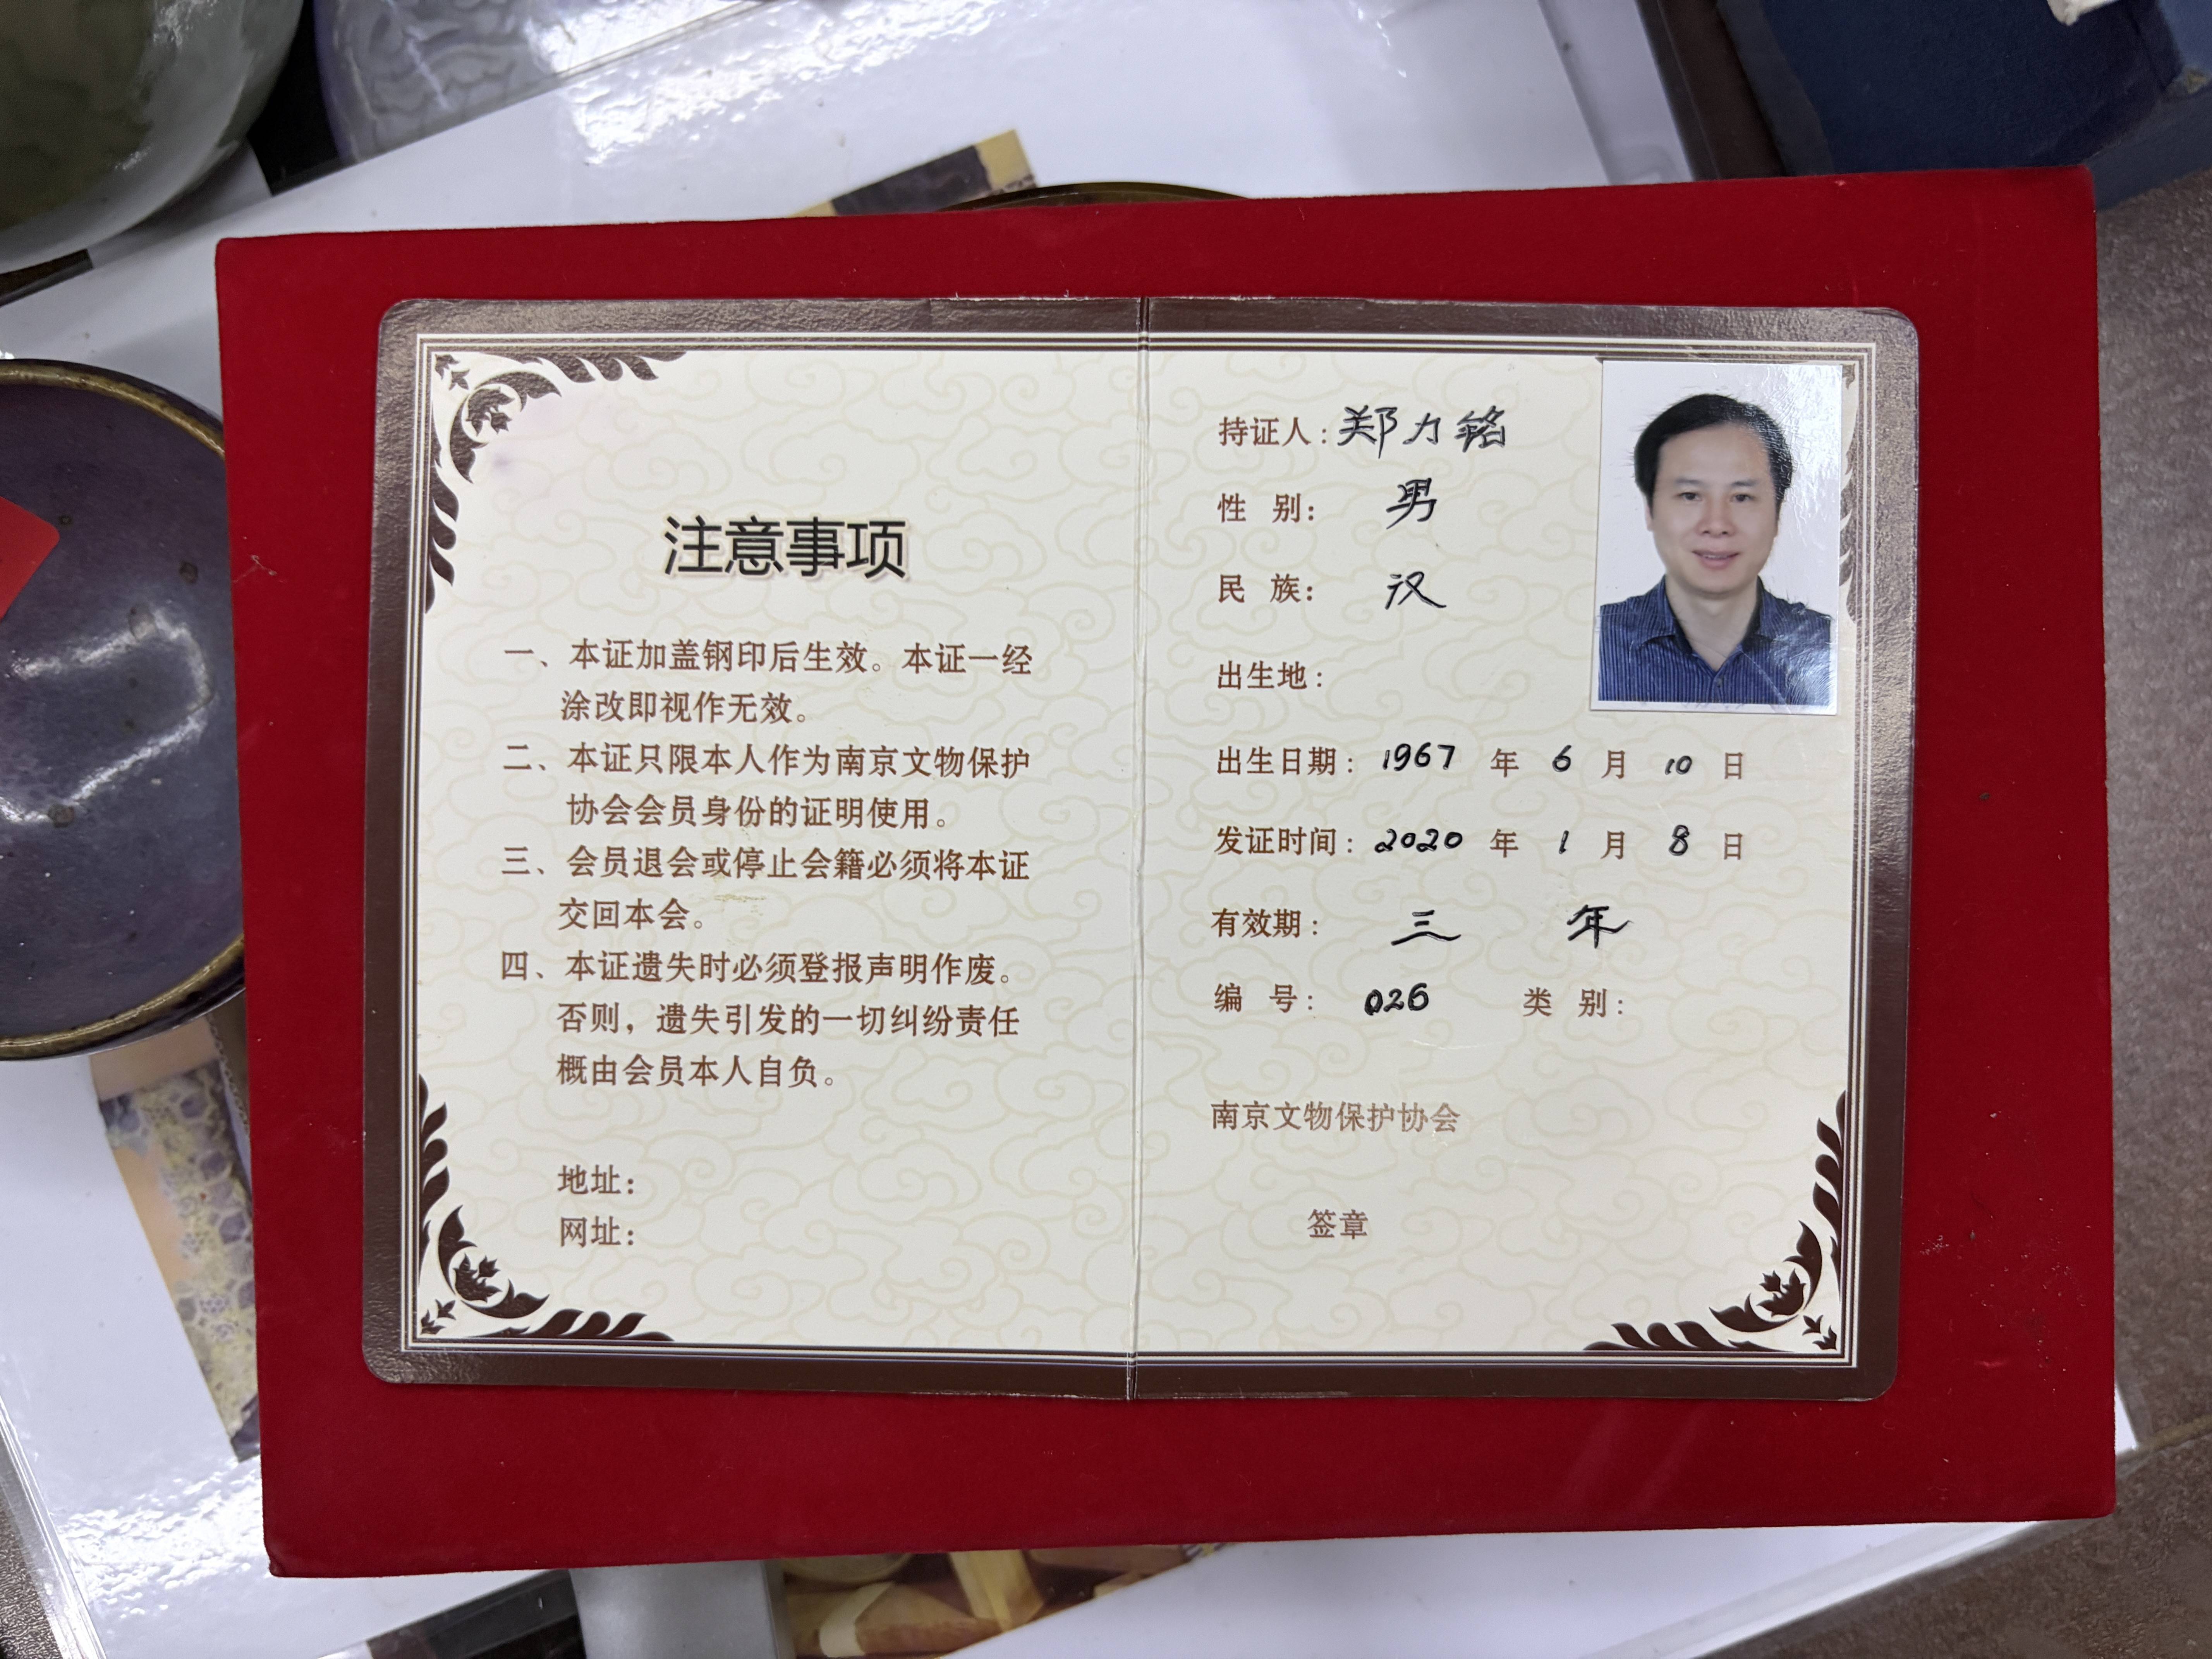 注意事项
一、本证加盖钢印后生效。本证一经
涂改即视作无效。
二、本证只限本人作为南京文物保护
协会会员身份的证明使用。
三、会员退会或停止会籍必须将本证
交回本会。
四、本证遗失时必须登报声明作废。
否则，遗失引发的一切纠纷责任
概由会员本人自负。
地址：
网址：
持证人：郑力铭
性 别： 男
民 族： 汉
出生地：
出生日期： 1967 年 6 月 10 日
发证时间： 2020 年 1 月 8 日
有效期： 三 年
编 号： 026 类 别：
南京文物保护协会
签章